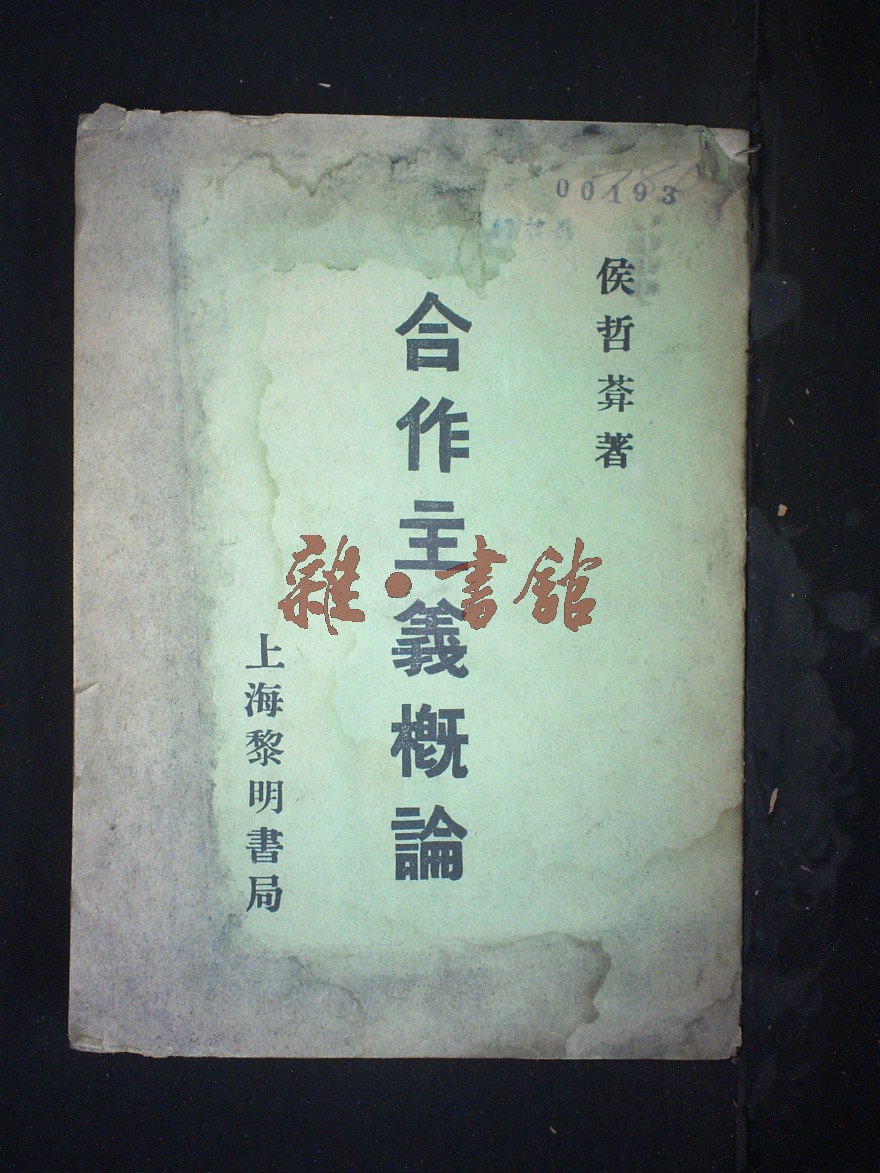 00193
侯哲葊著
合作主義概論
上海黎明書局
雜·書館